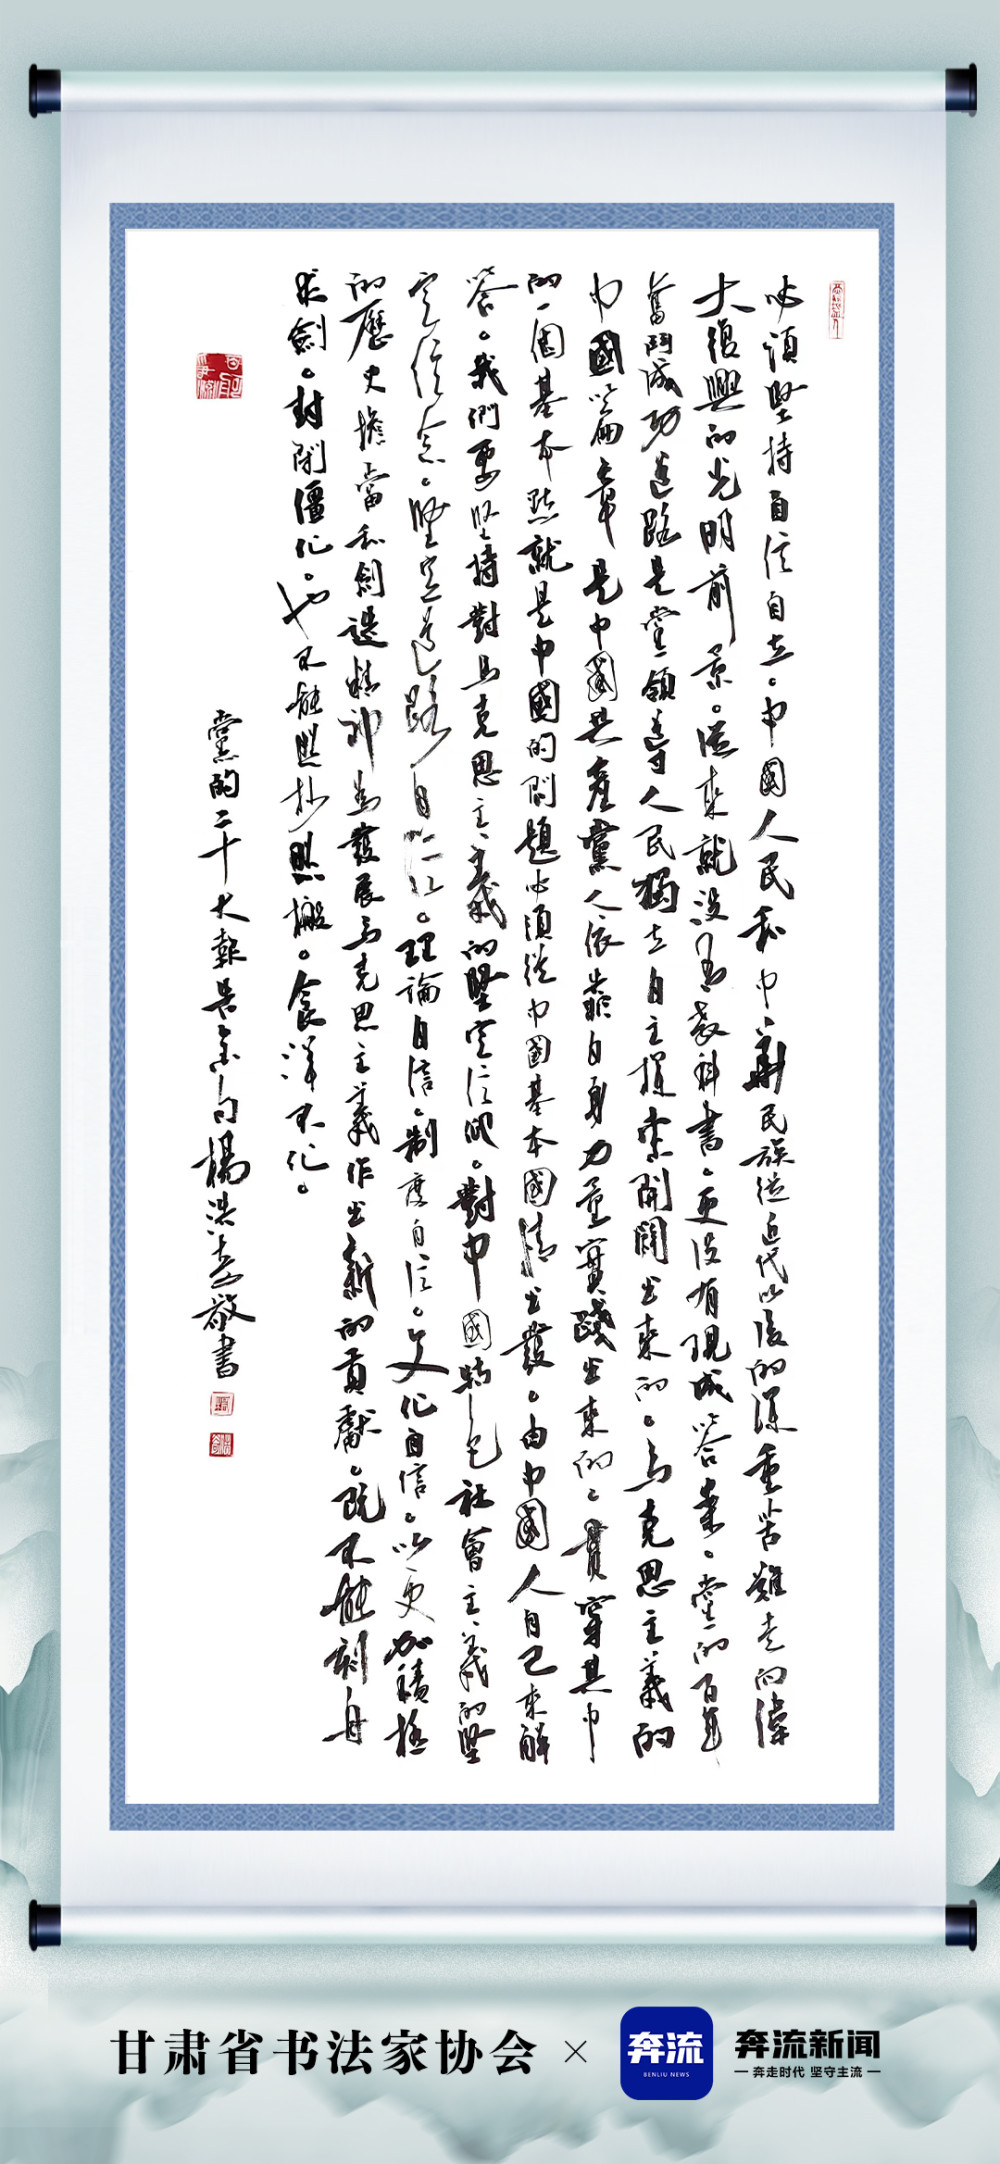 必須堅持自信自立。中國人民和中華民族從近代以後的深重苦難走向偉
大復興的光明前景。從來就沒有教科書。更沒有現成答案。黨的百年
奮鬥成功道路是黨領導人民獨立自主探索開闢出來的。馬克思主義的
中國篇章是中國共產黨人依靠自身力量實踐出來的。貫穿其中
的一個基本點就是中國的問題必須從中國基本國情出發。由中國人自己來解
答。我們要堅持對馬克思主義的堅定信仰。對中國特色社會主義的堅
定信念。堅定道路自信。理論自信。制度自信。文化自信。以更加積極
的歷史擔當和創造精神為發展馬克思主義作出新的貢獻。既不能刻舟
求劍。封閉僵化。也不能照抄照搬。食洋不化。
黨的二十大報告金句楊浩敬書
甘肃省书法家协会 × 奔流 奔流新闻
BENLIU NEWS
— 奔走时代 坚守主流 —